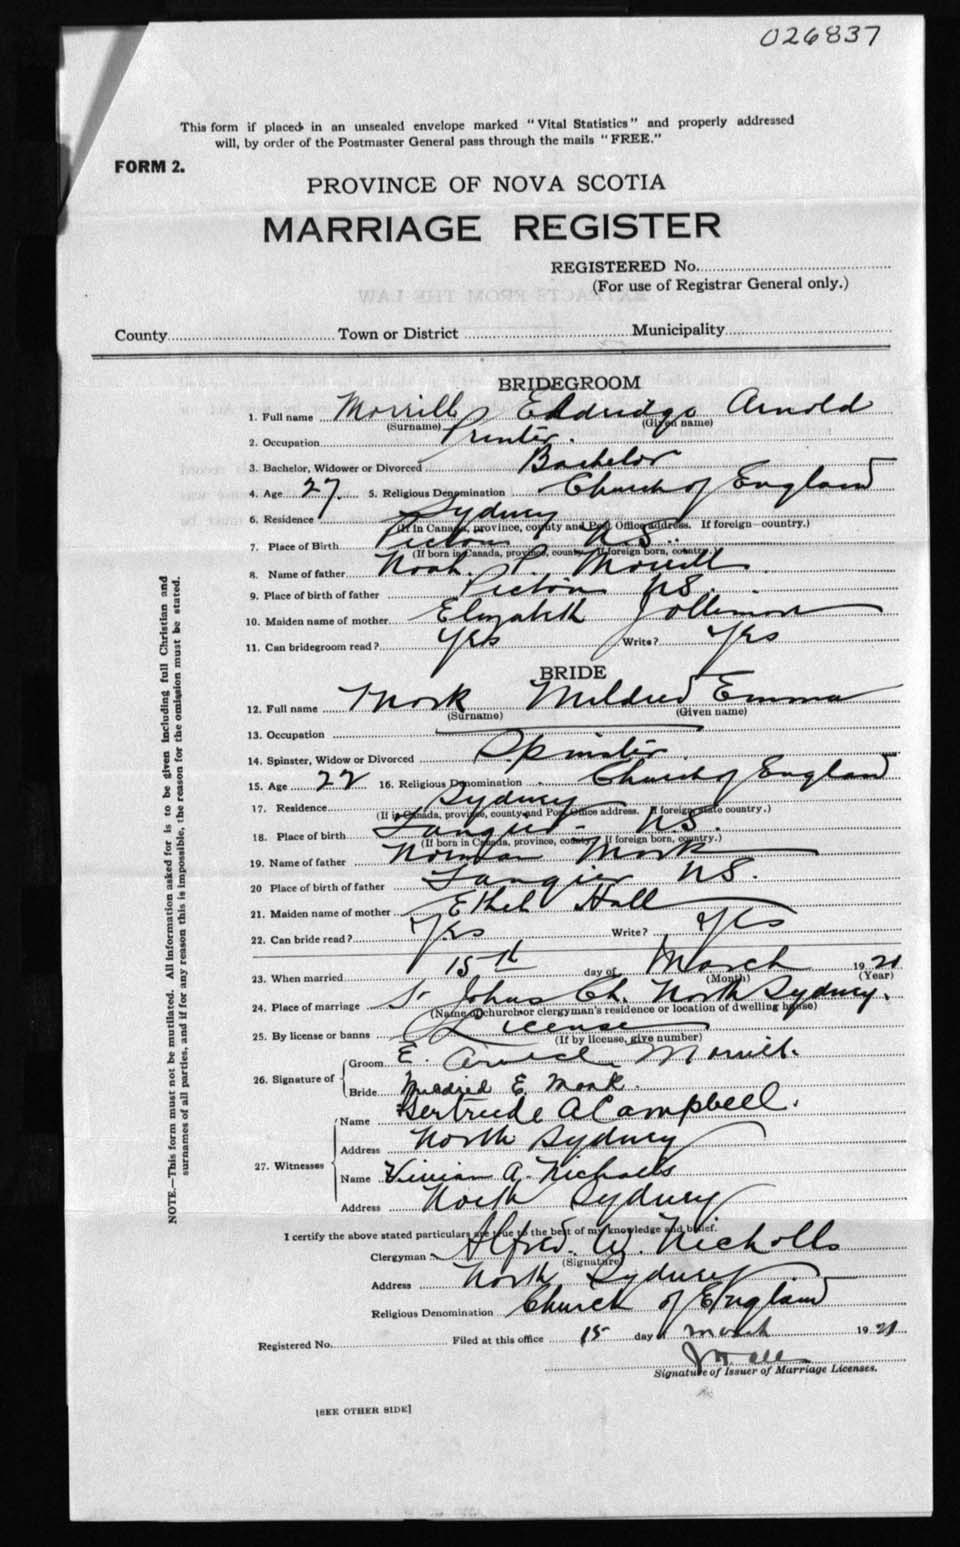 026837
This form if placed in an unsealed envelope marked "Vital Statistics" and properly addressed
will, by order of the Postmaster General pass through the mails "FREE."
FORM 2.
PROVINCE OF NOVA SCOTIA
MARRIAGE REGISTER
REGISTERED No.
(For use of Registrar General only.)
County Town or District Municipality
BRIDEGROOM
1. Full name Morrell Eldridge Arnold
(Surname) (Given name)
2. Occupation Printer.
3. Bachelor, Widower or Divorced Bachelor
4. Age 27 5. Religious Denomination Church of England
6. Residence Sydney
(If in Canada, province, county and Post Office address. If foreign country.)
7. Place of Birth Pictou N.S.
(If born in Canada, province, county. If foreign born, country.)
8. Name of father Noah P. Morrell
9. Place of birth of father Pictou NS.
10. Maiden name of mother Elizabeth
11. Can bridegroom read? Yes Write? Yes
BRIDE
12. Full name Mosk Mildred Emma
(Surname) (Given name)
13. Occupation
14. Spinster, Widow or Divorced Spinster
15. Age 22 16. Religious Denomination Church of England
17. Residence Sydney
(If in Canada, province, county and Post Office address. If foreign state country.)
18. Place of birth Tangier N.S.
(If born in Canada, province, county. If foreign born, country.)
19. Name of father Norman Mosk
20 Place of birth of father Tangier NS.
21. Maiden name of mother Ethel Hall
22. Can bride read? Yes Write? Yes
23. When married 15th day of March 1921
(Month) (Year)
24. Place of marriage St Johns Ch. North Sydney.
(Name of church or clergyman's residence or location of dwelling house)
25. By license or banns License
(If by license, give number)
26. Signature of
Groom E. Arnold Morrell.
Bride Mildred E Mosk.
27. Witnesses
Name Gertrude A Campbell.
Address North Sydney
Name Vivian A. Nicholls
Address North Sydney
I certify the above stated particulars are true to the best of my knowledge and belief.
Clergyman Alfred. W. Nicholls
(Signature)
Address North Sydney
Religious Denomination Church of England
Registered No. Filed at this office 15 day March 1921
Signature of Issuer of Marriage Licenses.
[SEE OTHER SIDE]
NOTE.—This form must not be mutilated. All information asked for is to be given including full Christian and
surnames of all parties, and if for any reason this is impossible, the reason for the omission must be stated.